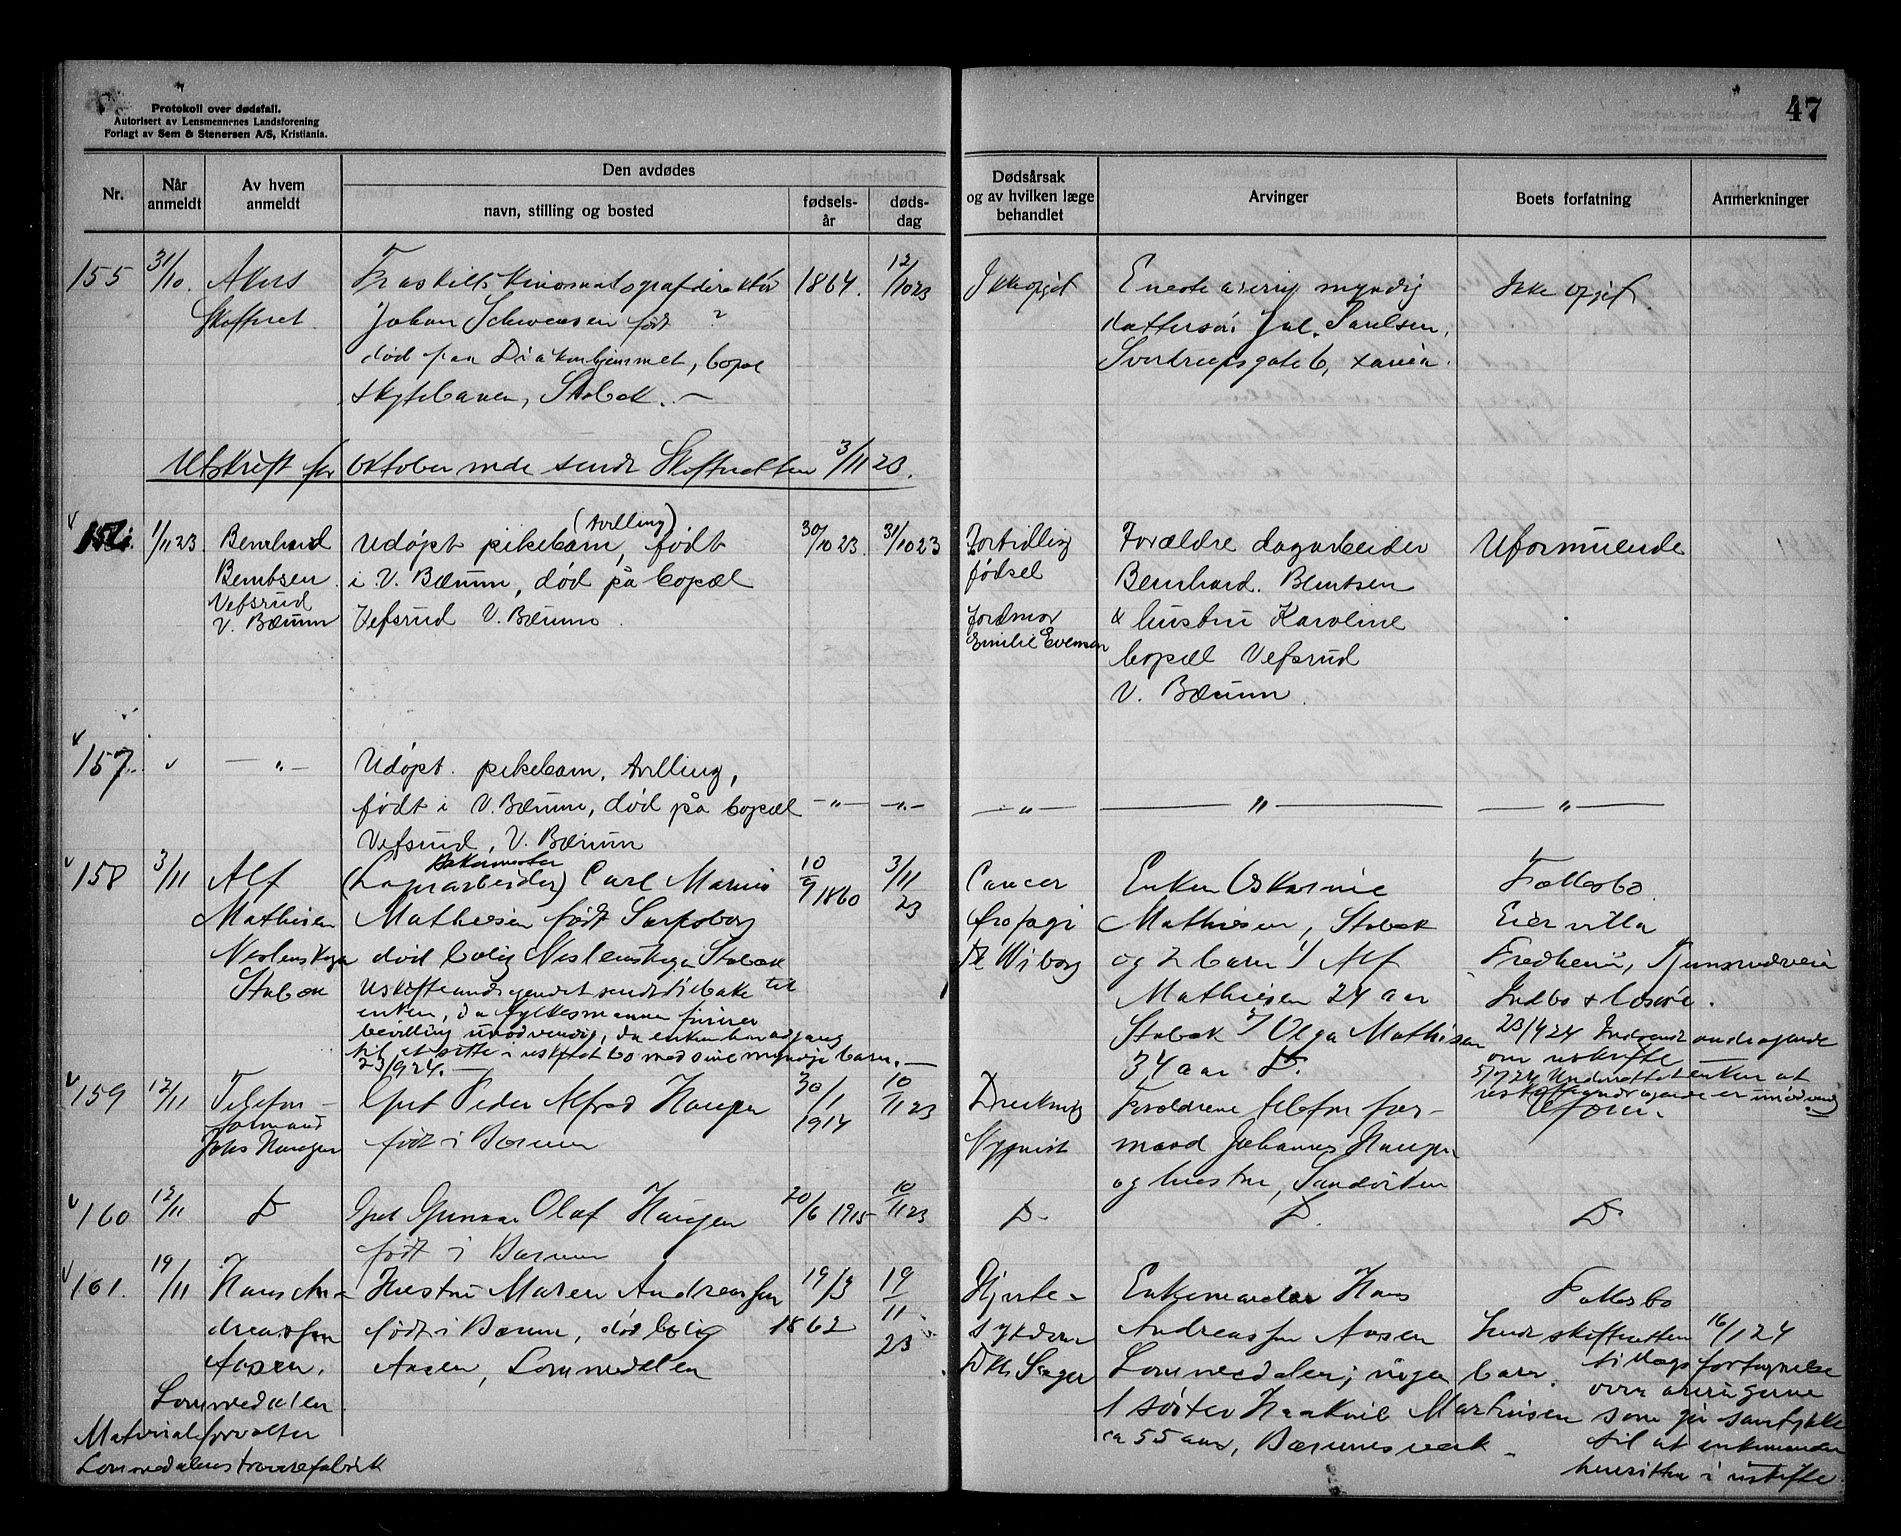 Protokoll over dødsfall.
Autorisert av Lensmennenes Landsforening
Forlagt av Sem & Stenersen A/S, Kristiania.
47
Nr.
Når anmeldt
Av hvem anmeldt
Den avdødes
navn, stilling og bosted
fødsels-år
døds-dag
Dødsårsak og av hvilken læge behandlet
Arvinger
Boets forfatning
Anmerkninger
155
31/10.
Akers
Skifteret
Fraskilt kinomatografdirektør
Johan Schwensen født ?
død paa Diakonhjemmet, bopæl
Skytebanen, Stabek. —
1864.
12/10 23
Ikke opgit
Eneste arving myndig
dattersøn Paulsen,
Sverdrupsgate 6, Xania.
Ikke opgit
Utskrift for oktober mde sendt Skifteretten 3/11 23.
156.
1/11 23
Bernhard
Berntsen
Vefsrud
V. Bærum
(tvilling)
Udøpt pikebarn, født
i V. Bærum, død på bopæl
Vefsrud V. Bærum.
30/10 23.
31/10 23
Fortidlig
fødsel
Jordmor
Emilie Evensen
Forældre dagarbeider
Bernhard Berntsen
& hustru Karoline
bopæl Vefsrud
V. Bærum.
Uformuende
157.
— „ —
Udøpt pikebarn, tvilling,
født i V. Bærum, død på bopæl
Vefsrud, V. Bærum
— „ —
— „ —
— „ —
— „ —
— „ —
158
3/11
Alf
Mathisen
Stabæk
(Lagerarbeider) Carl Marius
Mathiesen født Sarpsborg
død bolig Stabæk
enken, da fylkesmannen finner
bevilling unødvendig, da enken har adgang
til at sitte i uskiftet bo med sine myndige barn. —
23/9 24. —
10/9 1860
3/11 23
Cancer
Dr Wiborg
Enken Oskarine
Mathiesen, Stabek
og 2 barn 1/ Alf
Mathiesen 24 aar
Stabek 2/ Olga Mathisen
34 aar D.
Fællesbo.
Eier villa
Fredheim,
Indbo & løsøre.
23/9 24 Indsendt andragende
om uskifte
5/9 24 Underrettet enken at
uskifteandragende er unødvendig
159
12/11
Telefon-
formand
Johs Haugen
Gut Peder Alfred Haugen
født i Bærum
30/1 1914
10/11 23
Drukning
Nyquist
Forældrene telefonfor-
mand Johannes Haugen
og hustru, Sandviken
160
12/11
D
Gut Gunnar Olaf Haugen
født i Bærum
20/6 1915
10/11 23
D.
D.
D
161.
19/11
Hans An-
dreassen
Aasen,
Lommedalen
Materialforvalter
Lommedalens trævarefabrik
Hustru Maren Andreassen
født i Bærum, død bolig
Aasen, Lommedalen
19/3 1862
19/11 23
Hjerte-
sykdom
Enkemanden Hans
Andreassen Aasen
Lommedalen; ingen barn.
1 søster Martinsen
ca 55 aar, Bærumsverk —
Fællesbo
Sendt skifteretten 16/1 24
tillægsfortegnelse
over arvingerne
som gir samtykke
til at enkemanden
hensitter i uskifte.